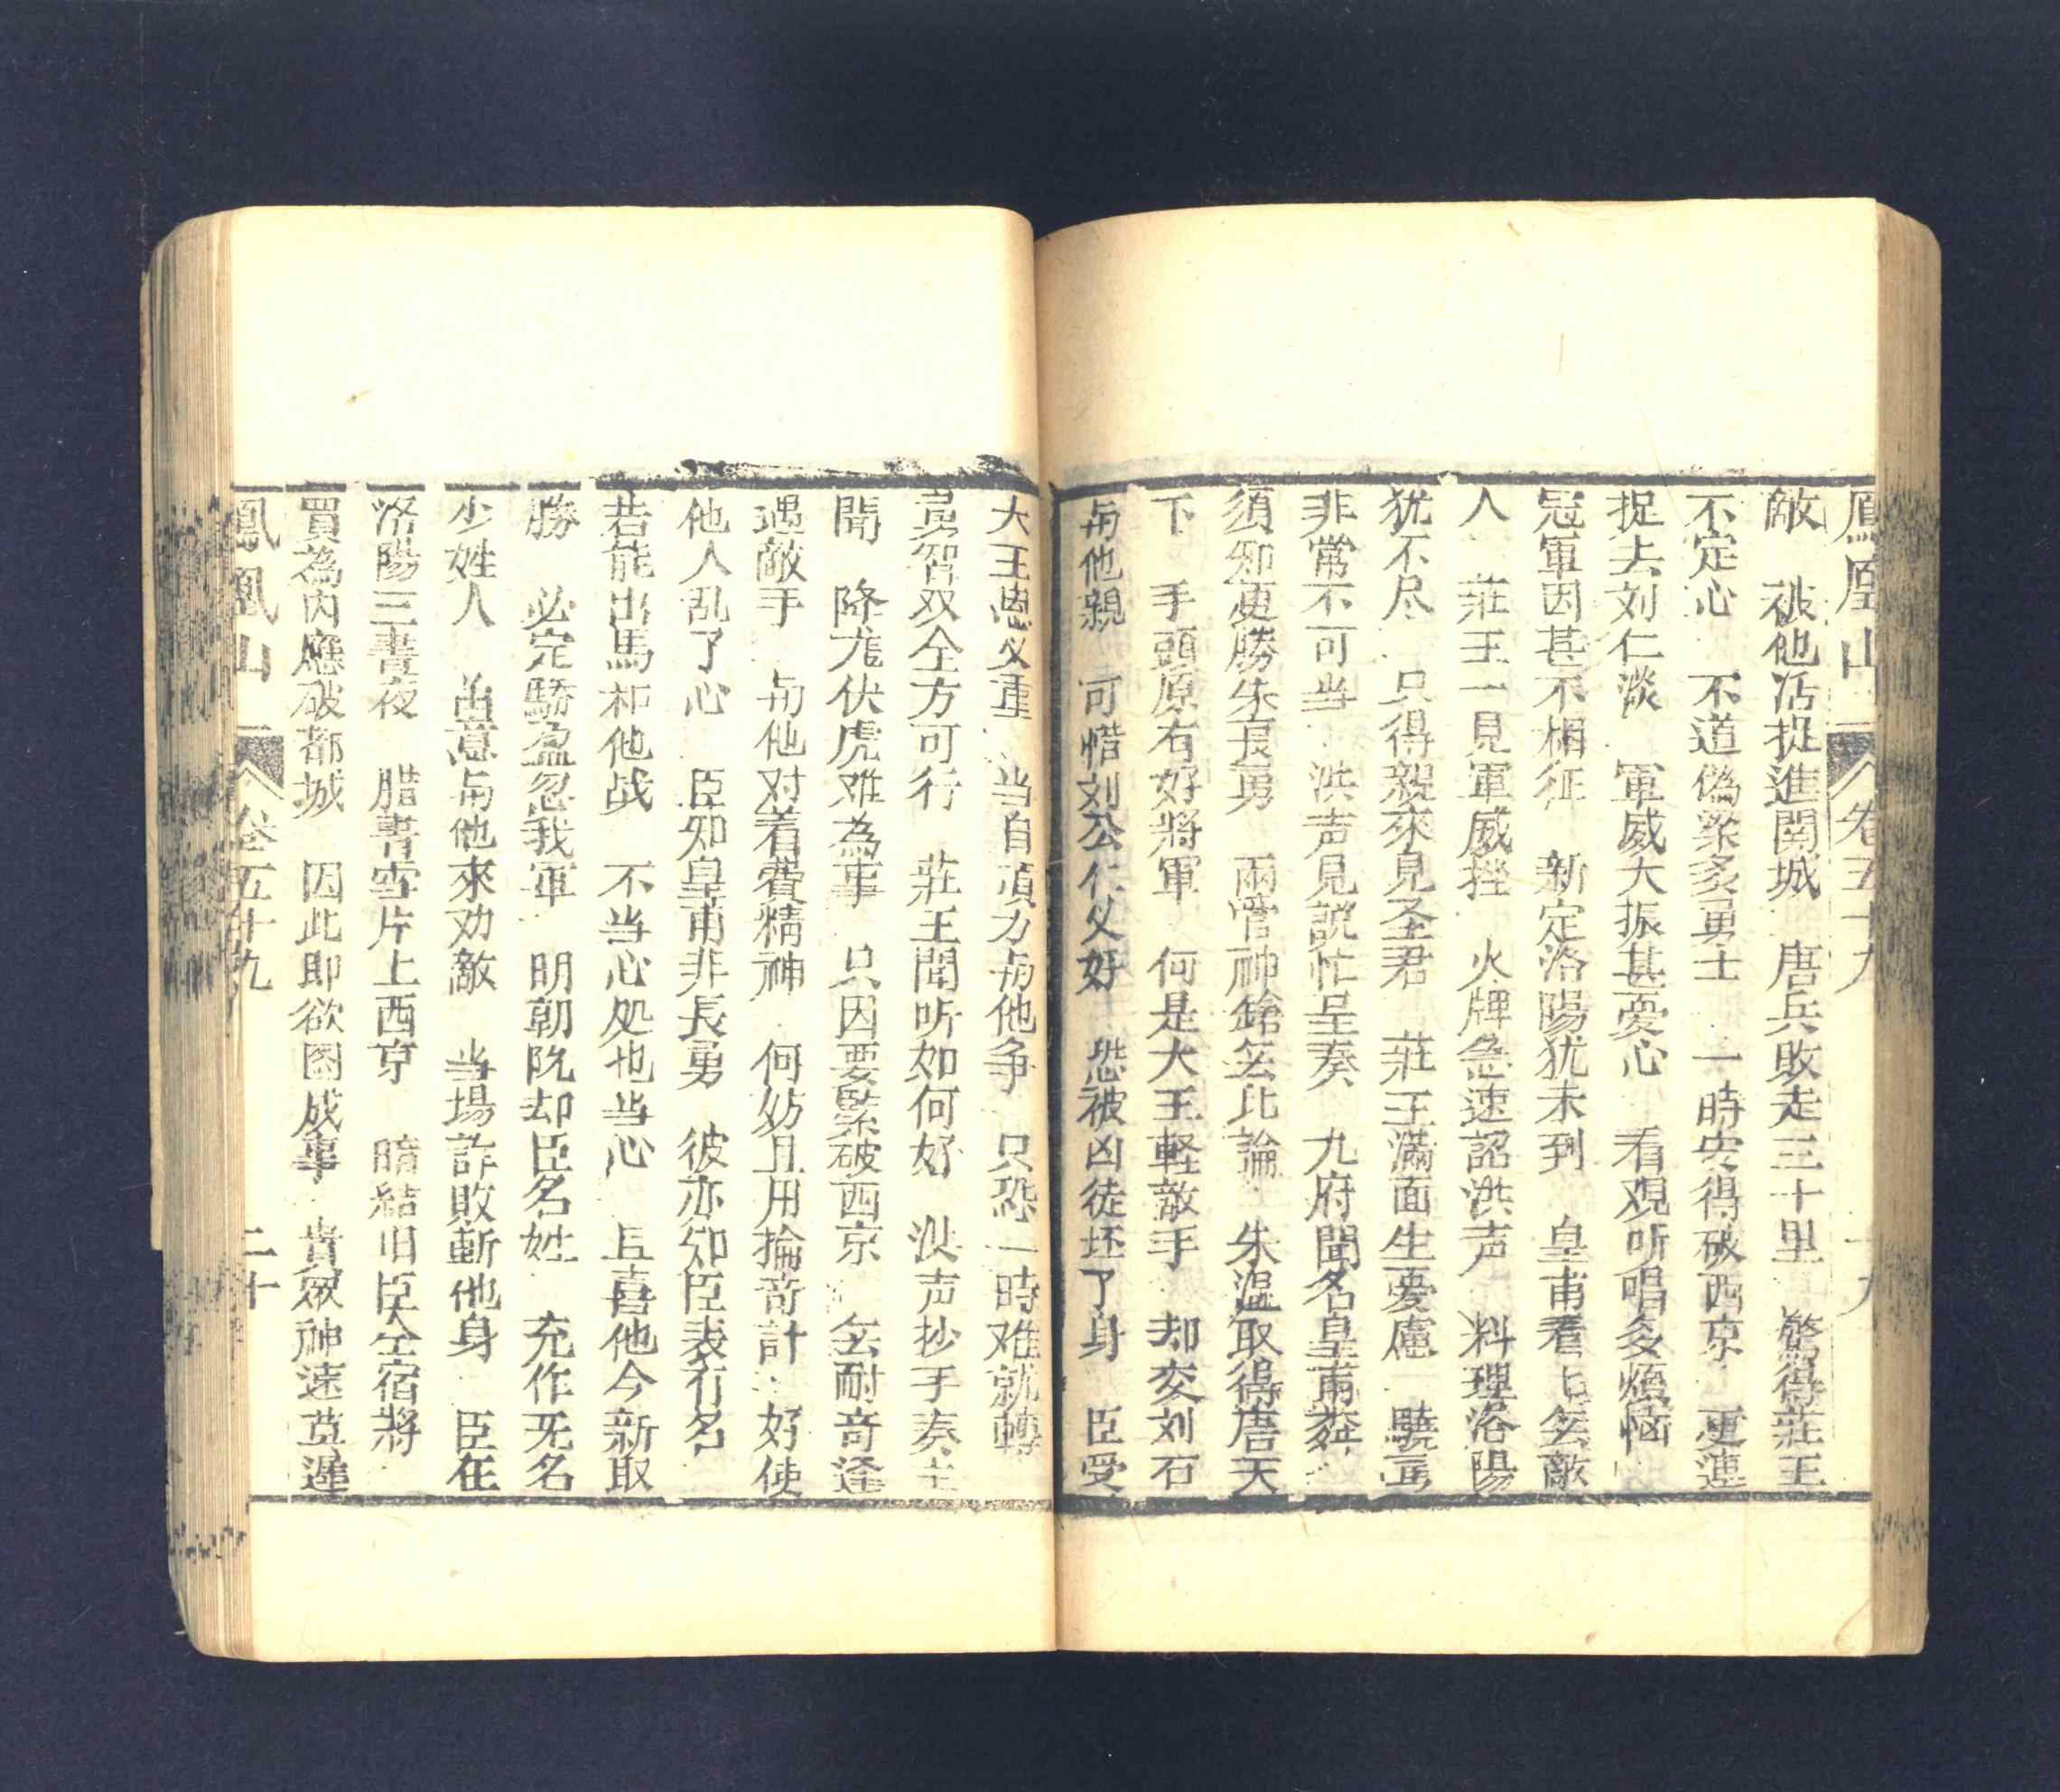 鳳凰山 卷五十九 十九
敵 被他活捉進関城 唐兵敗走三十里 驚得莊王
不定心 不道偽梁多勇士 一時安得破西京 更連
捉去刘仁淡 軍威大振甚憂心 看观听唱多煩恼
冠軍因甚不相征 新定洛陽犹未到 皇甫看看無敵
人 莊王一見軍威挫 火牌急速詔洪声 料理洛陽
犹不尽 只得親來見圣君 莊王滿面生憂慮 驍馬
非常不可当 洪声見説忙呈奏 九府聞名皇甫粦
須知更勝朱友勇 兩管神鎗無比論 朱温取得唐天
下 手頭原有好將軍 何是大王軽敵手 却交刘石
与他親 可惜刘公仁义好 恐被凶徒坯了身 臣受
大王恩义重 当自頂力与他争 只恐一時难就轉
勇智双全方可行 莊王聞听如何好 洪声抄手奏主
聞 降龙伏虎难為事 只因要緊破西京 無耐奇逢
遇敵手 与他对着費精神 何妨且用掄奇計 好使
他人乱了心 臣知皇甫非長勇 彼亦知臣表有名
若能出馬和他战 不当心処也当心 且喜他今新取
勝 必定驕盈忽我軍 明朝阮却臣名姓 充作无名
少姓人 故意与他來劝敵 当場詐敗斬他身 臣在
洛陽三晝夜 腊書雪片上西京 暗結旧臣全宿將
買為内應破都城 因此即欲图成事 貴眾神速莫遲
鳳凰山 卷五十九 二十